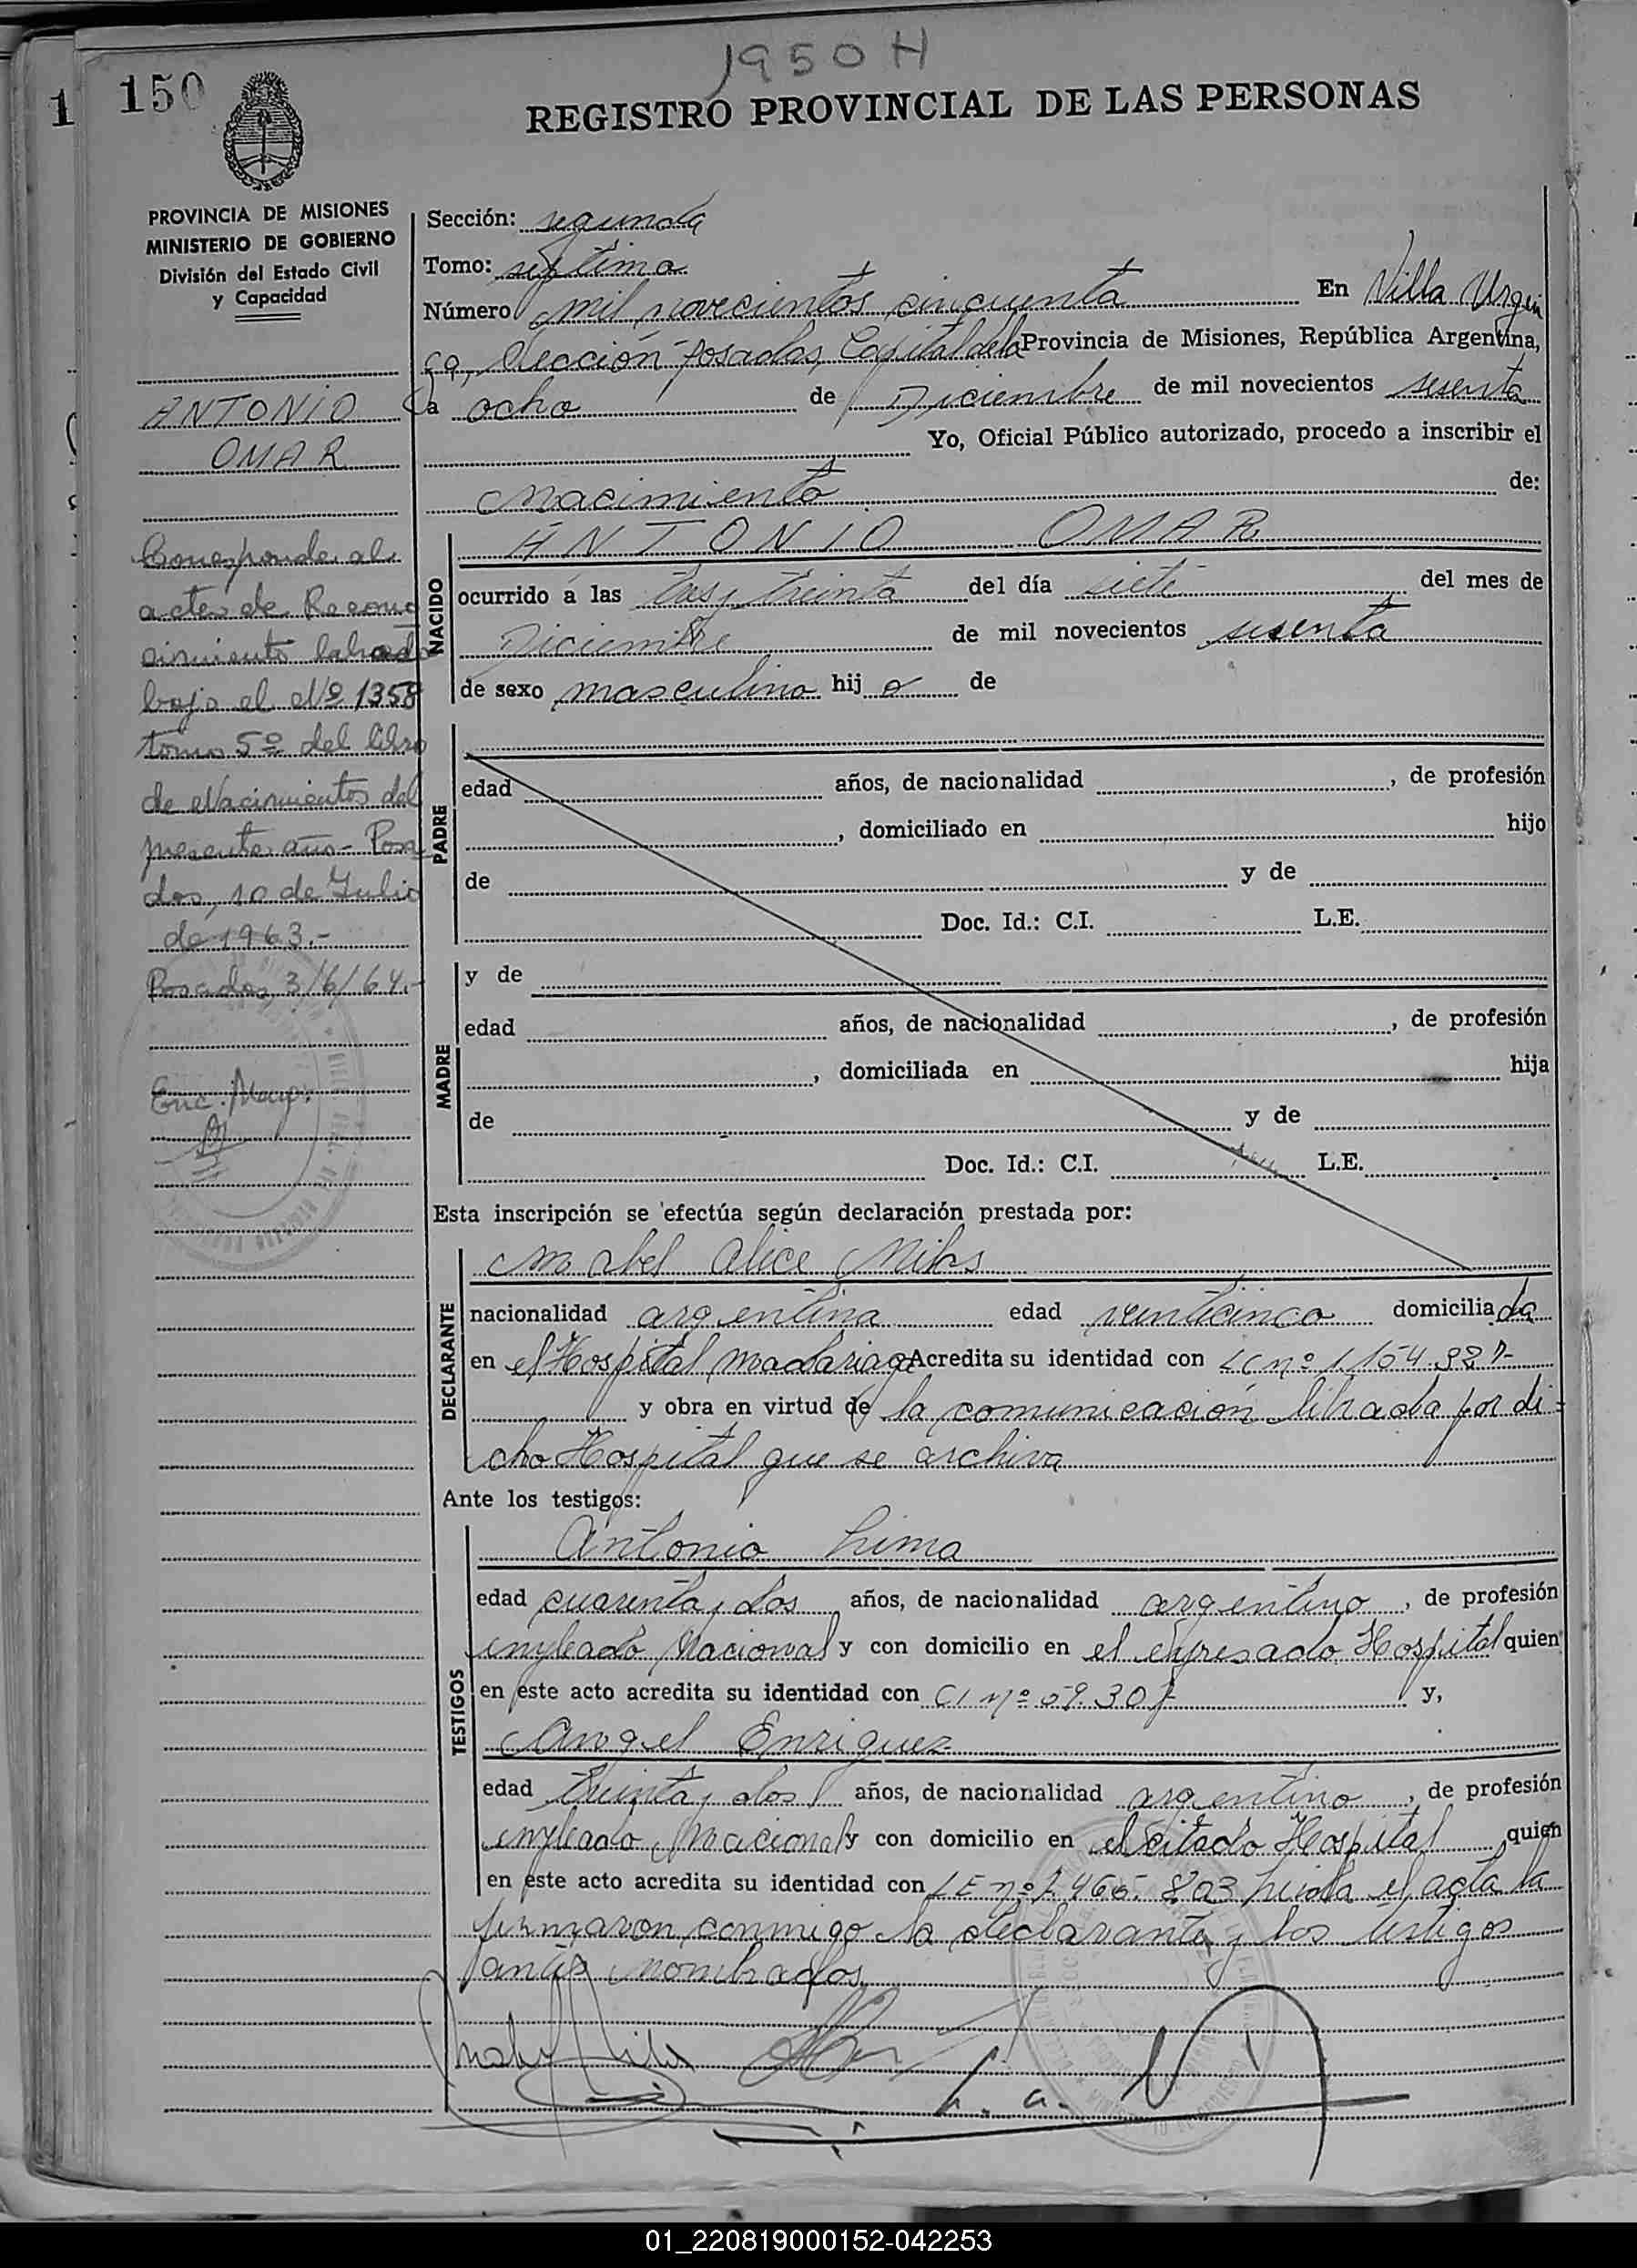 1950 H
150
1
REGISTRO PROVINCIAL DE LAS PERSONAS
PROVINCIA DE MISIONES
MINISTERIO DE GOBIERNO
División del Estado Civil
y Capacidad
ANTONIO
OMAR
Corresponde al
acta de Recono
cimiento labrado
bajo el Nº 1358
tomo 5º del libro
de Nacimientos del
presente año - Posa
das, 10 de Julio
de 1963.-
Posadas, 3/6/64.-
Enc. Mayo:
Sección: segunda
Tomo: septimo
Número mil novecientos cincuenta En Villa Urqui
za, Sección Posadas, Capital de la Provincia de Misiones, República Argentina,
a ocho de Diciembre de mil novecientos sesenta
Yo, Oficial Público autorizado, procedo a inscribir el
Nacimiento de:
NACIDO
ANTONIO OMAR
ocurrido a las tres y treinta del día siete del mes de
Diciembre de mil novecientos sesenta
de sexo masculino hij o de
PADRE
edad años, de nacionalidad , de profesión
, domiciliado en hijo
de y de
Doc. Id.: C.I. L.E.
MADRE
y de
edad años, de nacionalidad , de profesión
, domiciliada en hija
de y de
Doc. Id.: C.I. L.E.
Esta inscripción se efectúa según declaración prestada por:
DECLARANTE
Mabel Alice Miños
nacionalidad argentina edad veinticinco domicilia da
en el Hospital Madariaga Acredita su identidad con LC nº
y obra en virtud de la comunicación librada por di=
cho Hospital que se archiva
Ante los testigos:
TESTIGOS
Antonio Lima
edad cuarenta y dos años, de nacionalidad argentino, de profesión
empleado Nacional y con domicilio en el expresado Hospital quien
en este acto acredita su identidad con CI Nº 59.307 y,
Angel Enriquez
edad treinta y dos años, de nacionalidad argentino, de profesión
empleado Nacional y con domicilio en el citado Hospital quien
en este acto acredita su identidad con LE nº 803 leida el acta la
firmaron conmigo la declarante y los testigos
antes nombrados
01_220819000152-042253